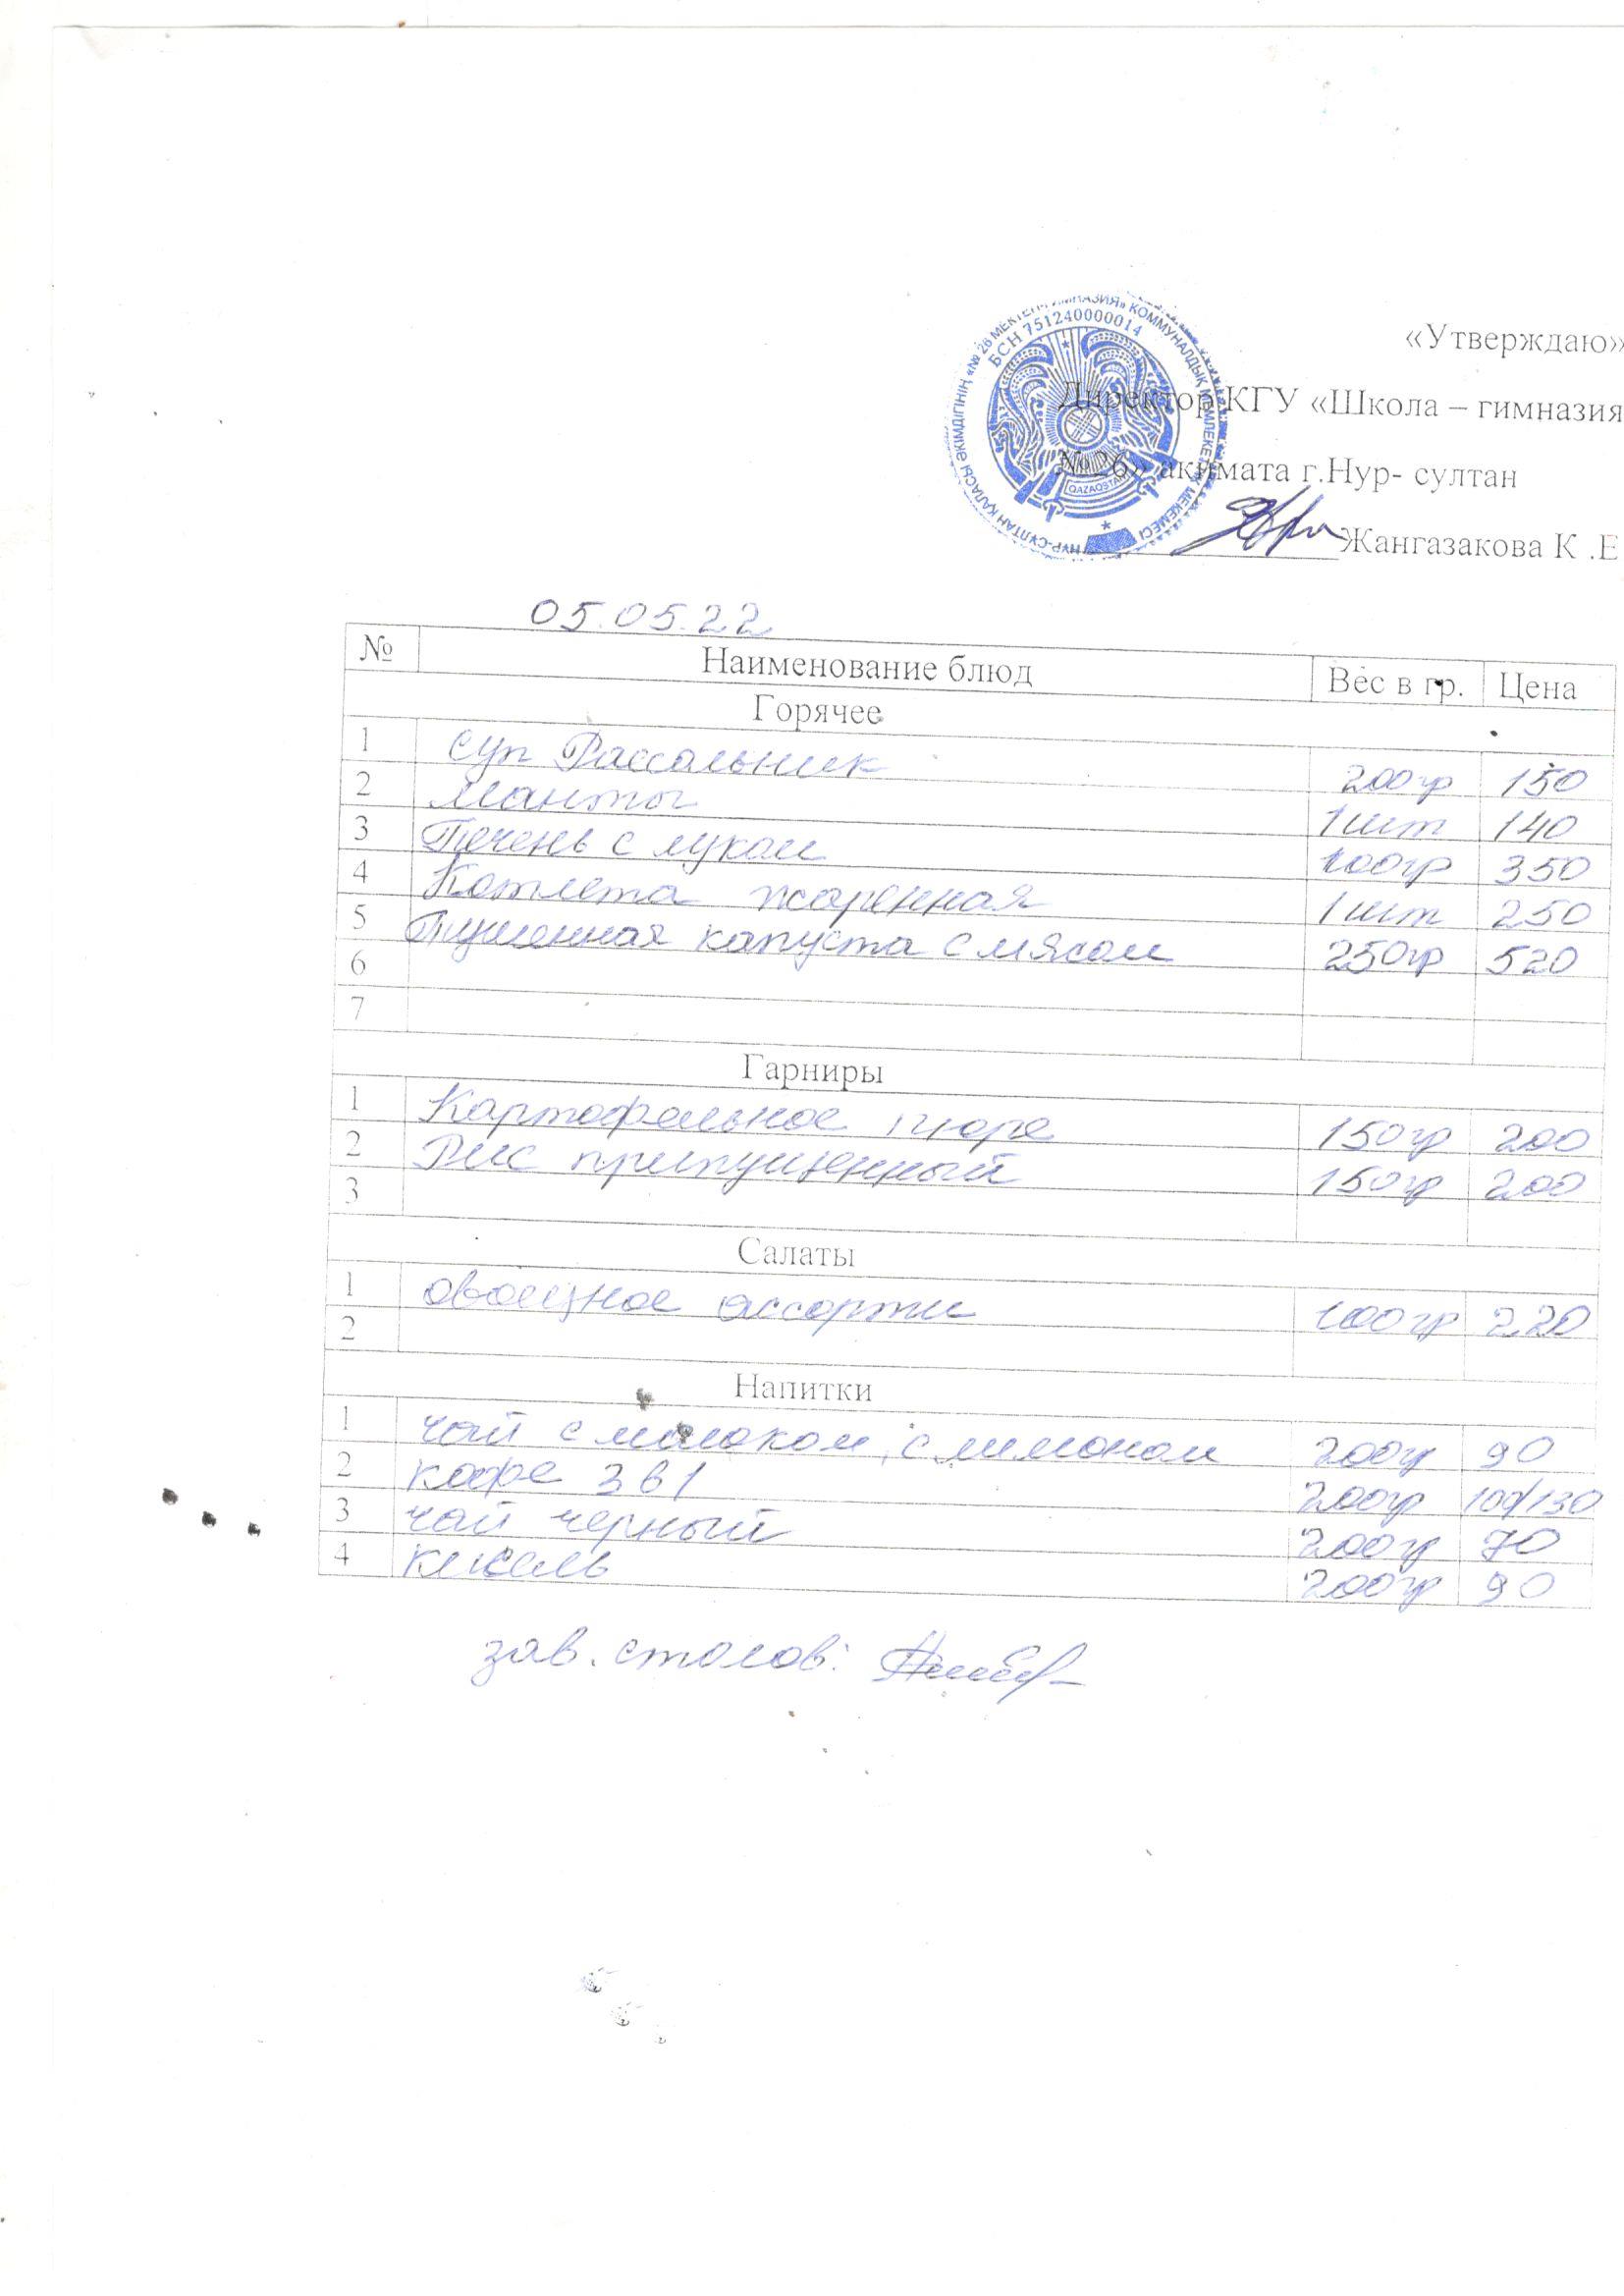 «Утверждаю»
Директор КГУ «Школа – гимназия
№ 26» акимата г.Нур- султан
Жангазакова К .Е
БСН 751240000014
QAZAQSTAN
05.05.22
№ Наименование блюд Вес в гр. Цена
Горячее
1 суп Рассольник 200гр 150
2 Манты 1шт 140
3 Печень с луком 100гр 350
4 Котлета жаренная 1шт 250
5 Тушенная капуста с мясом 250гр 520
6
7
Гарниры
1 Картофельное пюре 150гр 200
2 Рис припущенный 150гр 200
3
Салаты
1 овощное ассорти 100гр 220
2
Напитки
1 чай с молоком, с лимоном 200гр 90
2 кофе 3в1 200гр 100/130
3 чай черный 200гр 70
4 кисель 200гр 90
зав. столов: